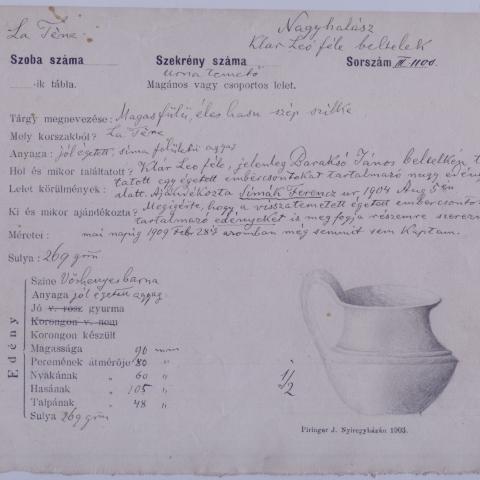 La Tène.
Nagyhalász
Klár Leó féle beltelek
Szoba száma
Szekrény száma
Sorszám III. 1100.
urnatemető
-ik tábla.
Magános vagy csoportos lelet.
Tárgy megnevezése: Magasfülü, éles hasu szép szilke
Mely korszakból? La Tène
Anyaga: jól égetett, sima felületü agyag
Hol és mikor találtatott? Klár Leo féle, jelenleg Baraksó János beltelkén
tatott egy égetett embercsontokat tartalmazó nagy edény
Lelet körülmények: alatt. Ajándékozta Simák Ferencz ur, 1904 Aug 5én
Ki és mikor ajándékozta? Megigérte, hogy a visszatemetett égetett embercsontokat
tartalmazó edényeket is meg fogja részemre szerezni
Méretei: mai napig 1909 Febr 28ig azonban még semmit sem kaptam.
Sulya: 269 grm
Edény
Szine Vöshenyesbarna
Anyaga jól égetett agyag
Jó v. rosz gyurma
Korongon v. nem
Korongon készült
Magassága 96 mm
Peremének átmérője 80 "
Nyakának " 60 "
Hasának " 105 "
Talpának " 48 "
Sulya 269 grm
1/2
Piringer J. Nyiregyházán 1903.